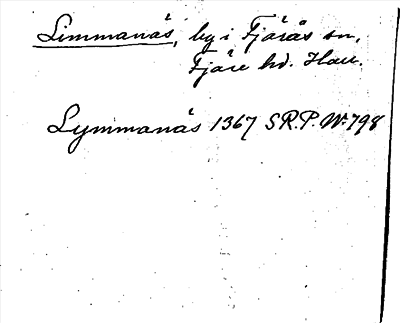 Limmanäs, by i Fjärås sn,
Fjäre hd. Hall.
Lymmanäs 1367 S.R.P. Nº 798